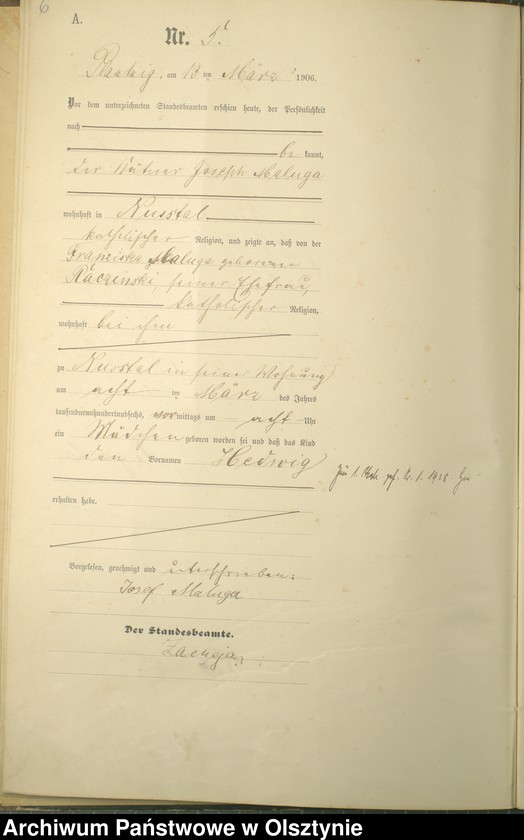 6
A.
Nr. 5.
am 13 ten März 1906.
Vor dem unterzeichneten Standesbeamten erschien heute, der Persönlichkeit
nach
be kannt,
der Joseph Maluga
wohnhaft in Russtal
katholischer Religion, und zeigte an, daß von der
Franziska Maluga geborenen
Raczinski, seiner Ehefrau,
katholischer Religion,
wohnhaft bei ihm
zu Russtal in seiner Wohnung
am acht ten März des Jahres
tausendneunhundertundsechs, vor mittags um acht Uhr
ein Mädchen geboren worden sei und daß das Kind
den Vornamen Hedwig
erhalten habe.
Vorgelesen, genehmigt und unterschrieben:
Josef Maluga
Der Standesbeamte.
Archiwum Państwowe w Olsztynie